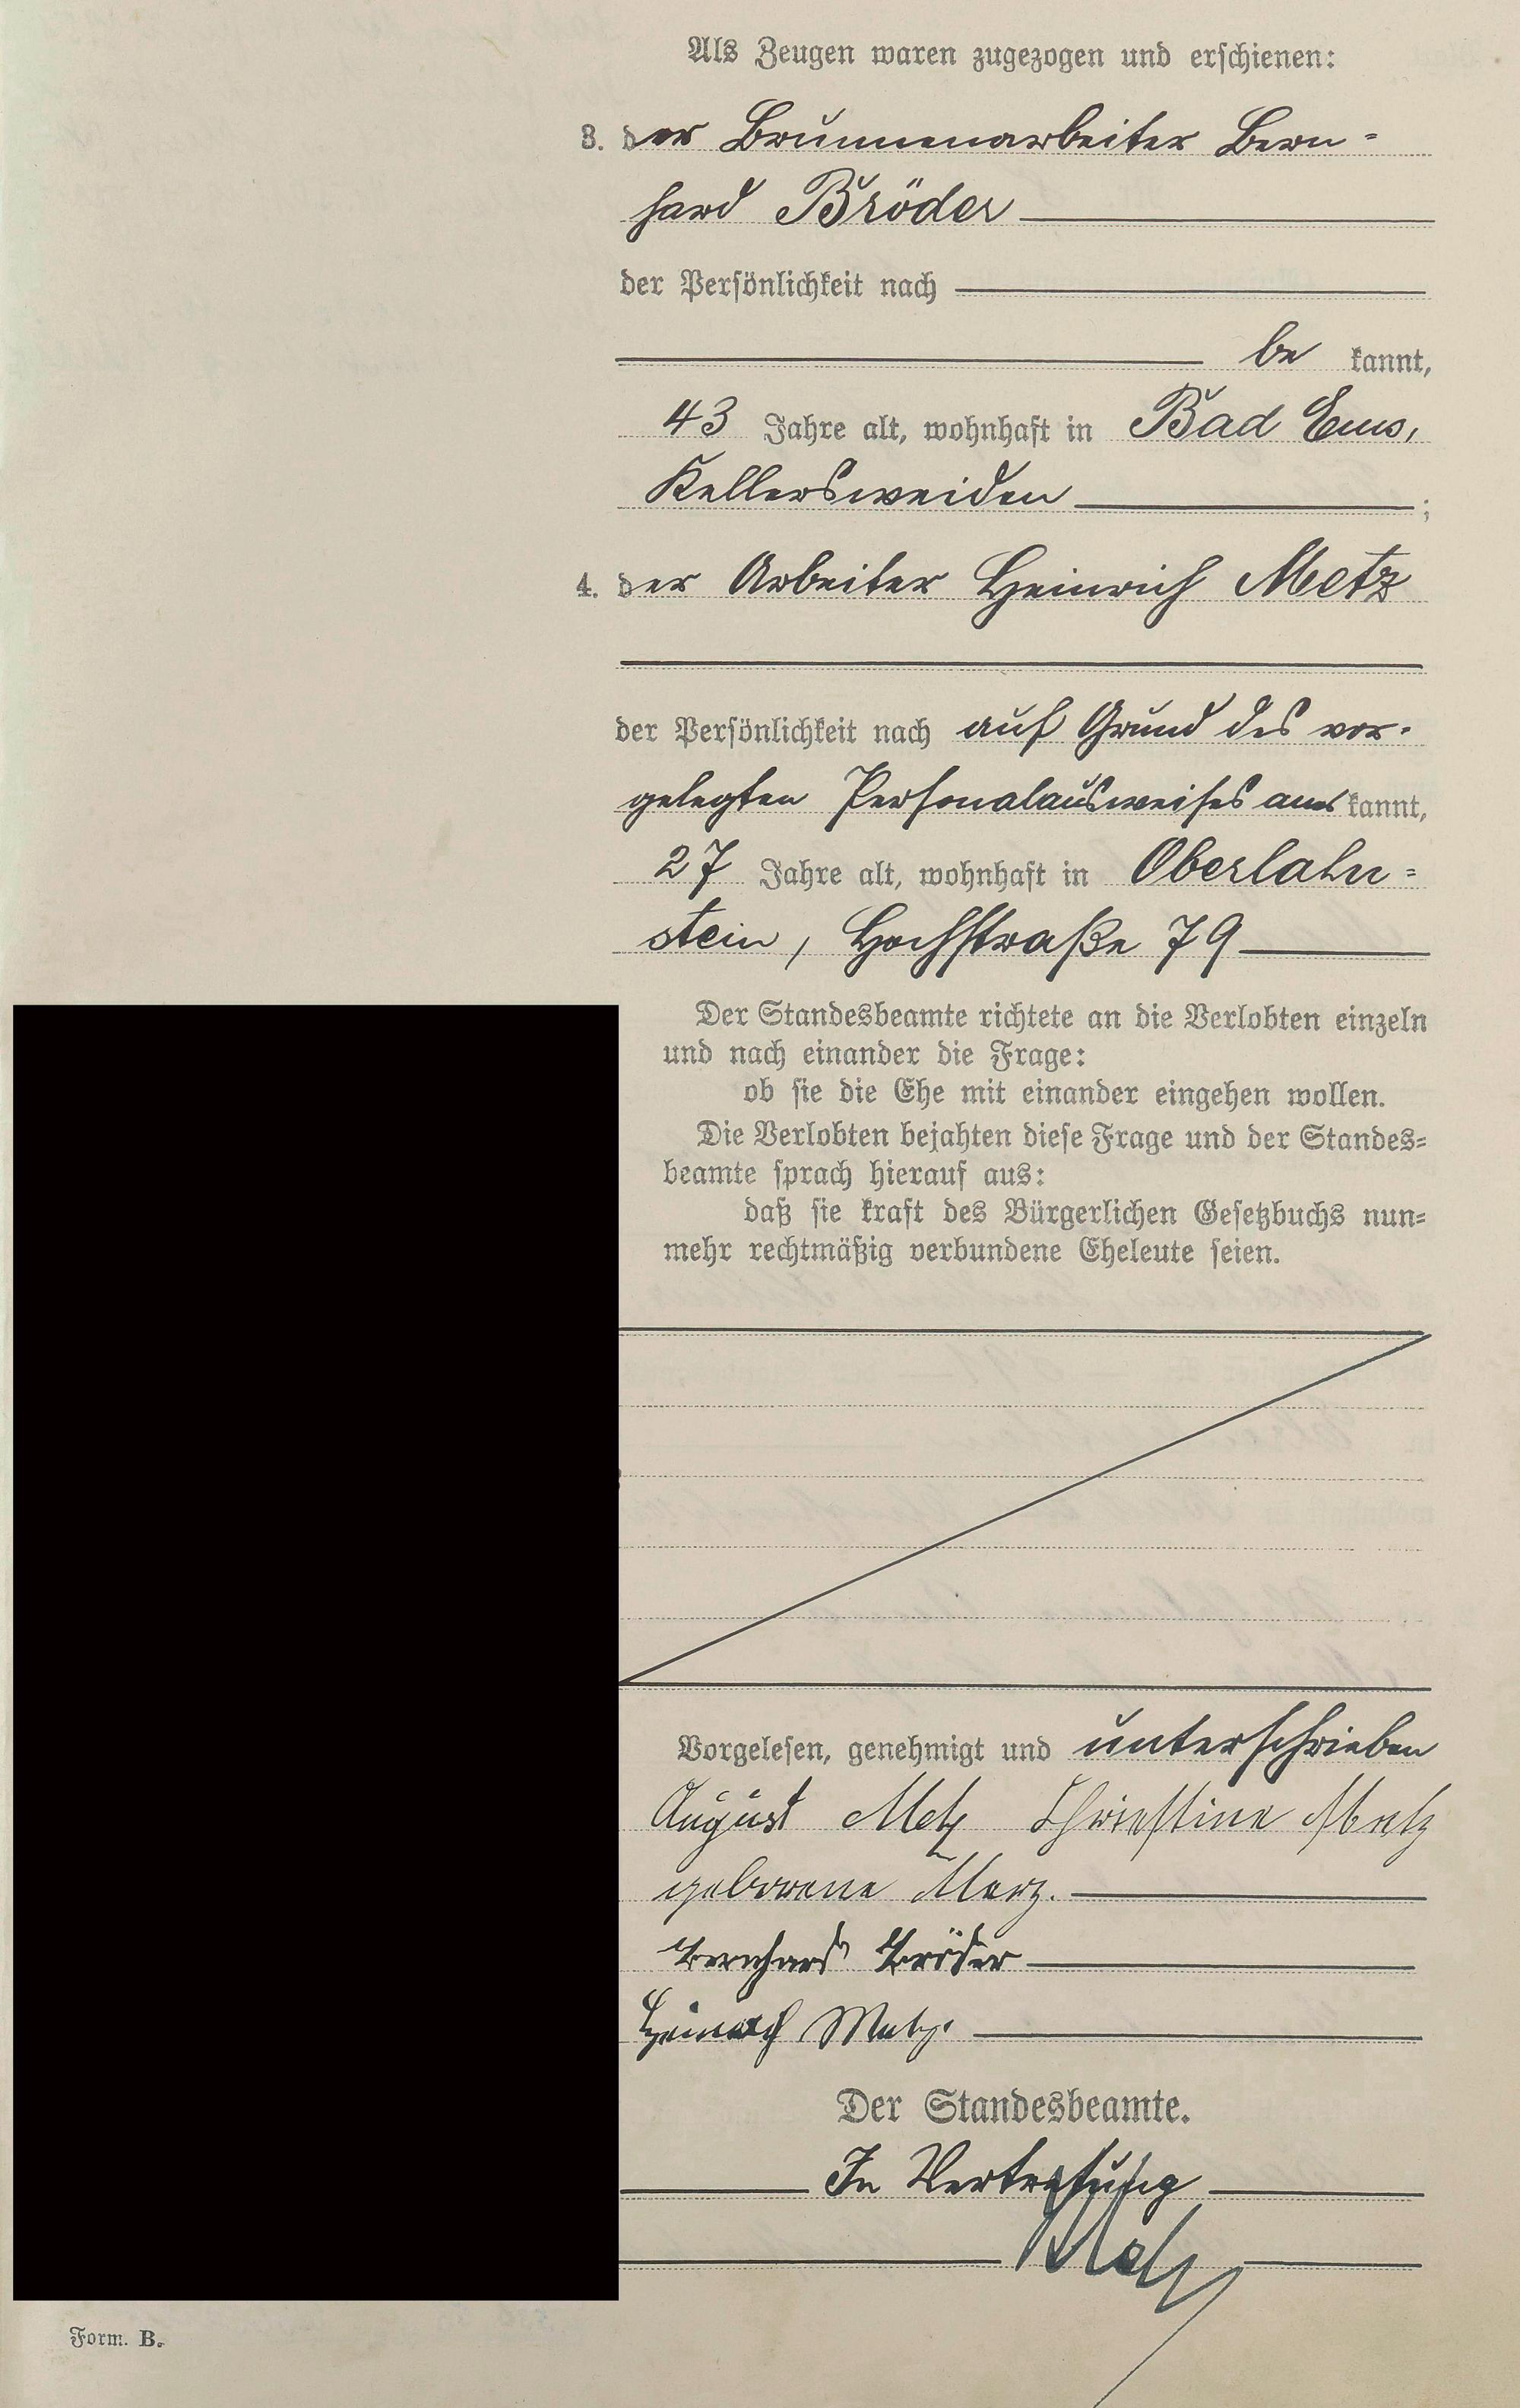 Als Zeugen waren zugezogen und erschienen:
3. der Brunnenarbeiter Bern=
hard Bröder
der Persönlichkeit nach
be kannt,
43 Jahre alt, wohnhaft in Bad Ems,
Kellersweiden ;
4. der Arbeiter Heinrich Metz
der Persönlichkeit nach auf Grund des vor-
gelegten Personalausweises aner kannt,
27 Jahre alt, wohnhaft in Oberlahn=
stein, Hochstraße 79
Der Standesbeamte richtete an die Verlobten einzeln
und nach einander die Frage:
ob sie die Ehe mit einander eingehen wollen.
Die Verlobten bejahten diese Frage und der Standes=
beamte sprach hierauf aus:
daß sie kraft des Bürgerlichen Gesetzbuchs nun=
mehr rechtmäßig verbundene Eheleute seien.
Vorgelesen, genehmigt und unterschrieben
August Metz Christine Metz
geborene Merz.
Bernhard Bröder
Heinrich Metz.
Der Standesbeamte.
In Vertretung
Form. B.